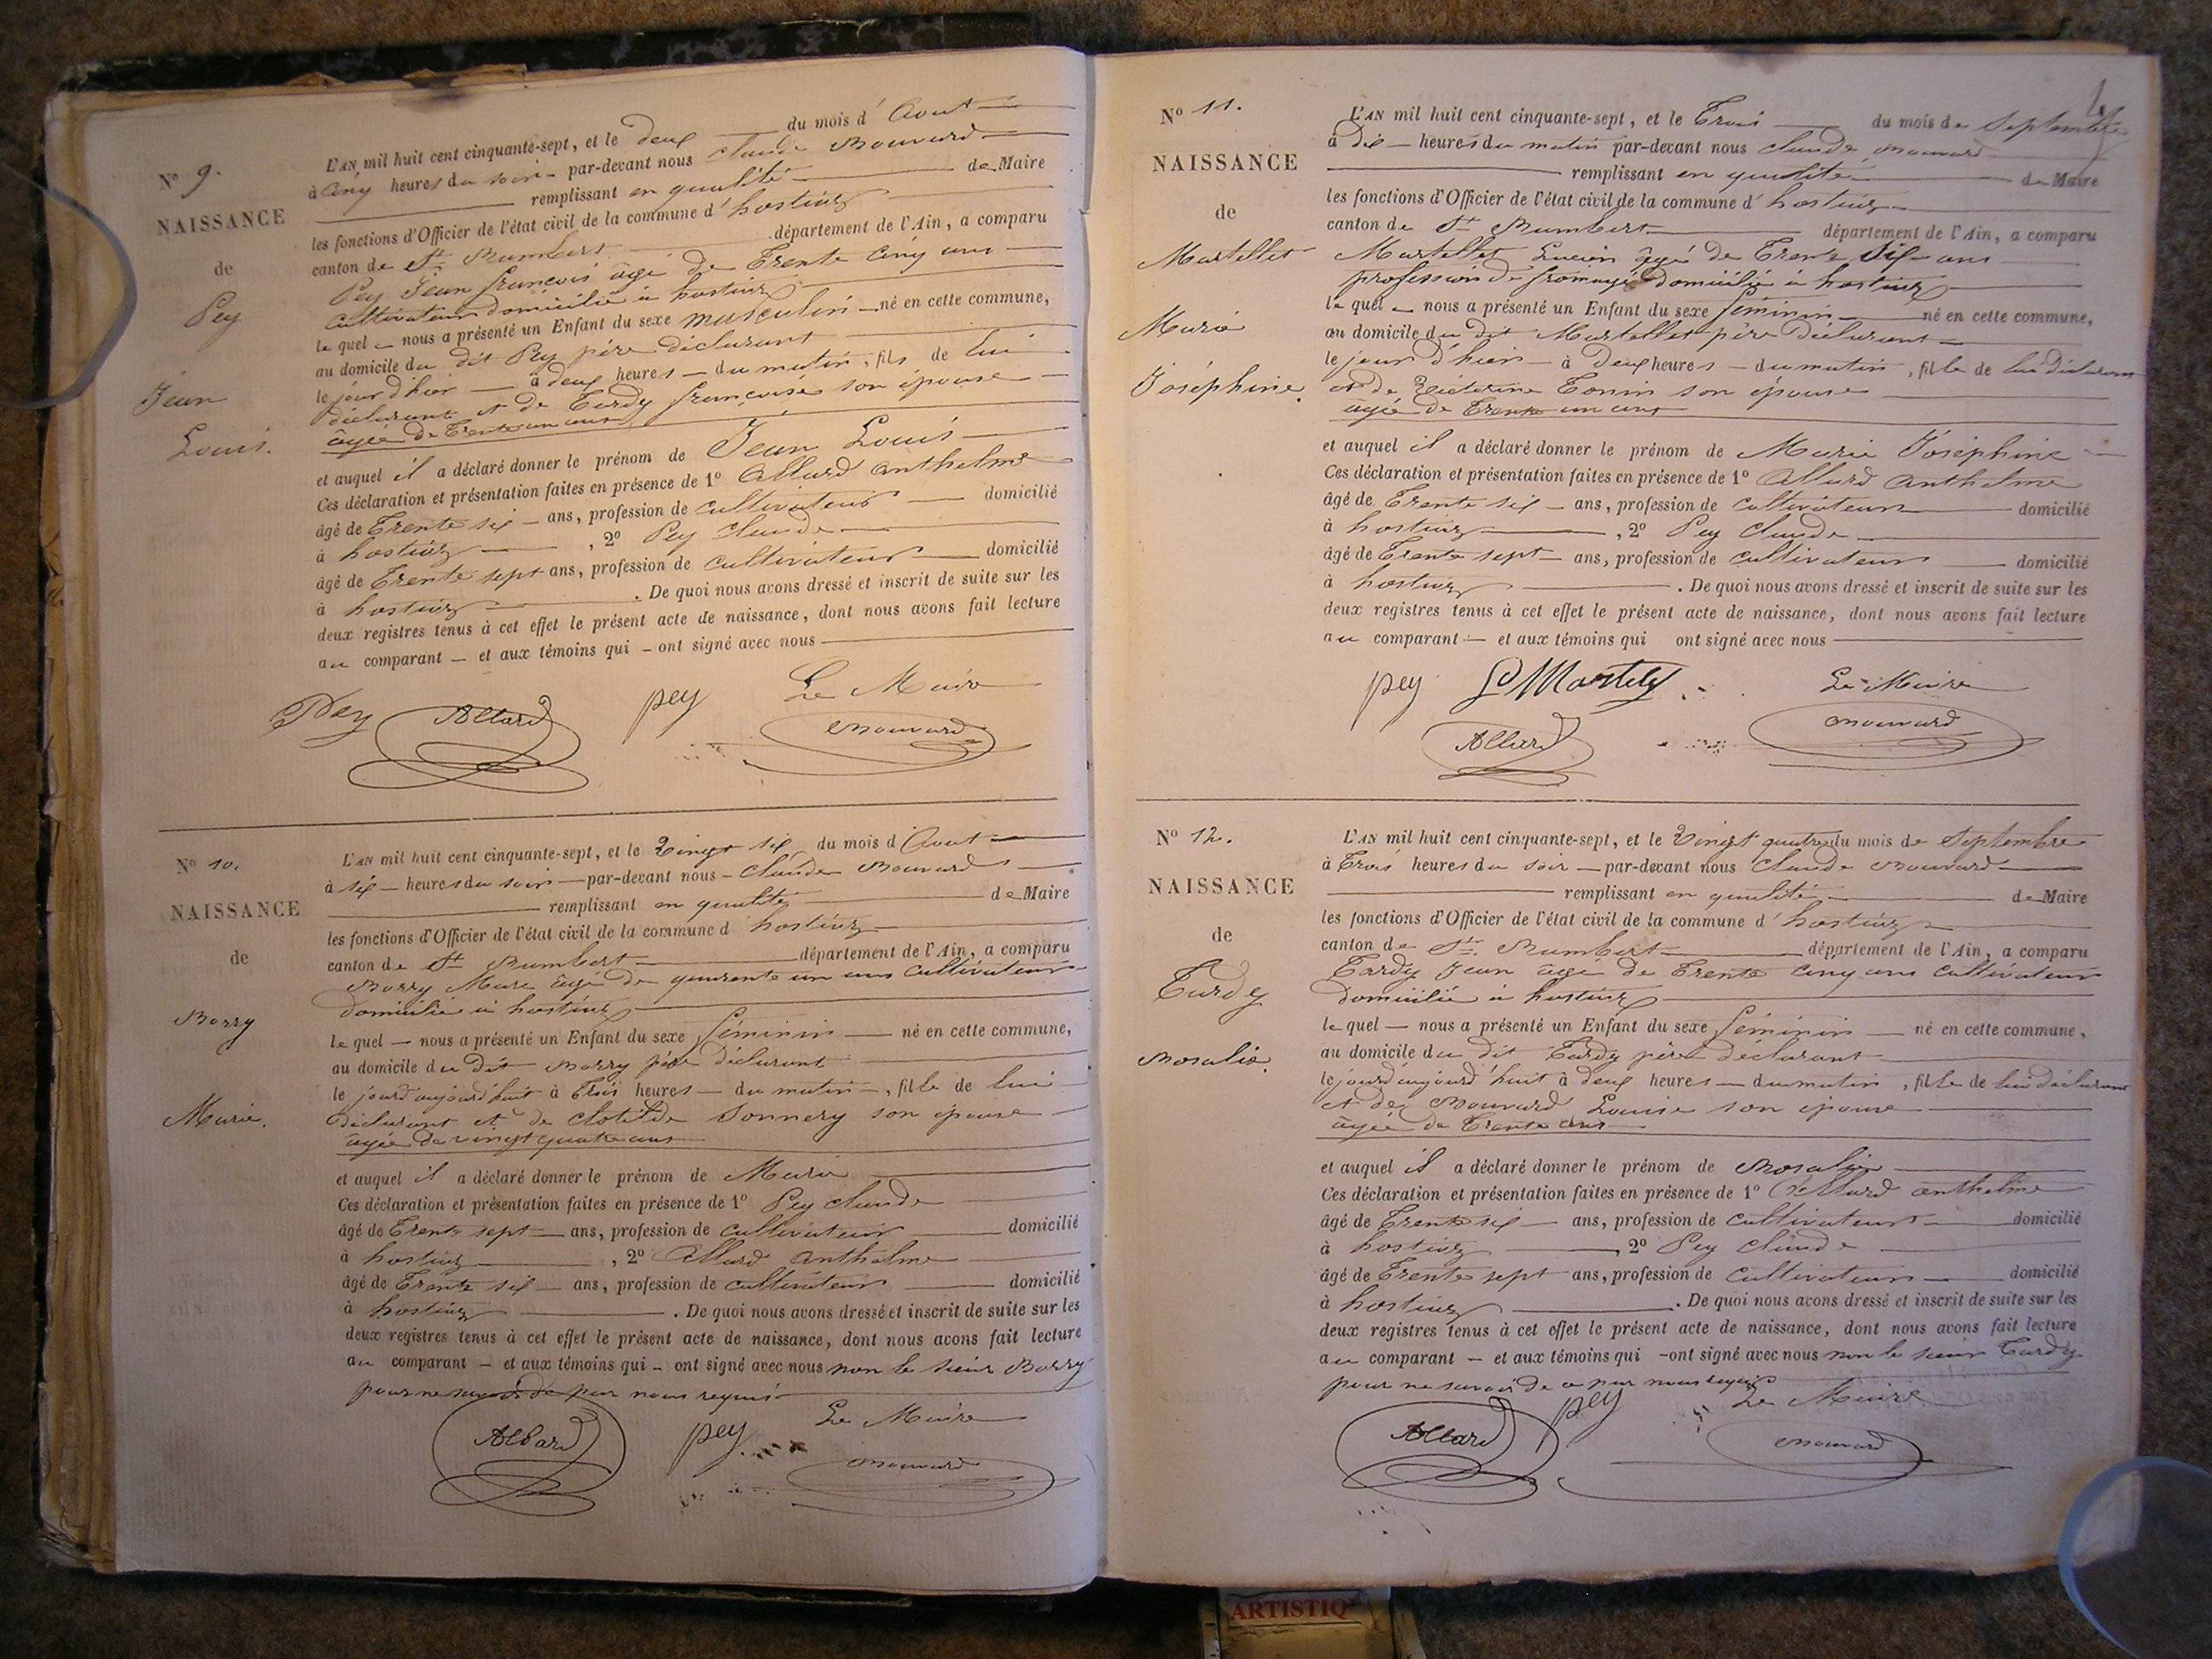 Nº 9.
NAISSANCE
de
Pey
Jean
Louis.
L'AN mil huit cent cinquante-sept, et le deux du mois d'Aout
à Cinq heures du soir par-devant nous Claude Bouvard
remplissant en qualité de Maire
les fonctions d'Officier de l'état civil de la commune d'hostiaz
canton de St Rambert département de l'Ain, a comparu
Pey Jean françois âgé de Trente Cinq ans
cultivateur domicilié à hostiaz
le quel nous a présenté un Enfant du sexe masculin né en cette commune,
au domicile du dit Pey père déclarant
le jour d'hier à deux heures du matin, fils de lui
déclarant et de Tardy françoise son épouse
âgée de trente un ans
et auquel il a déclaré donner le prénom de Jean Louis
Ces déclaration et présentation faites en présence de 1º Allard Anthelme
âgé de Trente six ans, profession de cultivateur domicilié
à hostiaz, 2º Pey Claude
âgé de Trente sept ans, profession de cultivateur domicilié
à hostiaz. De quoi nous avons dressé et inscrit de suite sur les
deux registres tenus à cet effet le présent acte de naissance, dont nous avons fait lecture
au comparant et aux témoins qui ont signé avec nous
Pey Allard pey Le Maire
Bouvard
Nº 10.
NAISSANCE
de
Borry
Marie.
L'AN mil huit cent cinquante-sept, et le Vingt six du mois d'Aout
à six heures du soir par-devant nous Claude Bouvard
remplissant en qualité de Maire
les fonctions d'Officier de l'état civil de la commune d'hostiaz
canton de St Rambert département de l'Ain, a comparu
Borry Marc âgé de quarente un ans Cultivateur
domicilié à hostiaz
le quel nous a présenté un Enfant du sexe féminin né en cette commune,
au domicile du dit Borry père déclarant
le jour d'aujourd'huit à Trois heures du matin, fille de lui
déclarant et de Clotilde Sonnery son épouse
âgée de vingt quatre ans
et auquel il a déclaré donner le prénom de Marie
Ces déclaration et présentation faites en présence de 1º Pey Claude
âgé de Trente sept ans, profession de cultivateur domicilié
à hostiaz, 2º Allard Anthelme
âgé de Trente six ans, profession de cultivateur domicilié
à hostiaz. De quoi nous avons dressé et inscrit de suite sur les
deux registres tenus à cet effet le présent acte de naissance, dont nous avons fait lecture
au comparant et aux témoins qui ont signé avec nous non le sieur Borry
pour ne savoir de par nous requis
Allard pey Le Maire
Bouvard
4
Nº 11.
NAISSANCE
de
Martellet
Marie
Joséphine.
L'AN mil huit cent cinquante-sept, et le Trois du mois de Septembre
à Dix heures du matin par-devant nous Claude Bouvard
remplissant en qualité de Maire
les fonctions d'Officier de l'état civil de la commune d'hostiaz
canton de St Rambert département de l'Ain, a comparu
Martellet Lucien âgé de Trente Six ans
profession de fromagé domicilié à hostiaz
le quel nous a présenté un Enfant du sexe féminin né en cette commune,
au domicile du dit Martellet père déclarant
le jour d'hier à Deux heures du matin, fille de lui déclarant
et de son épouse
âgée de Trente un ans
et auquel il a déclaré donner le prénom de Marie Joséphine
Ces déclaration et présentation faites en présence de 1º Allard Anthelme
âgé de Trente six ans, profession de Cultivateur domicilié
à hostiaz, 2º Pey Claude
âgé de Trente sept ans, profession de cultivateur domicilié
à hostiaz. De quoi nous avons dressé et inscrit de suite sur les
deux registres tenus à cet effet le présent acte de naissance, dont nous avons fait lecture
au comparant et aux témoins qui ont signé avec nous
pey Le Maire
Allard Bouvard
Nº 12.
NAISSANCE
de
Tardy
Rosalie.
L'AN mil huit cent cinquante-sept, et le Vingt quatre du mois de Septembre
à Trois heures du soir par-devant nous Claude Bouvard
remplissant en qualité de Maire
les fonctions d'Officier de l'état civil de la commune d'hostiaz
canton de St Rambert département de l'Ain, a comparu
Tardy Jean âgé de Trente cinq ans cultivateur
domicilié à hostiaz
le quel nous a présenté un Enfant du sexe féminin né en cette commune,
au domicile du dit Tardy père déclarant
le jour d'aujourd'huit à deux heures du matin, fille de lui déclarant
et de Bouvard Louise son épouse
âgée de Trente ans
et auquel il a déclaré donner le prénom de Rosalie
Ces déclaration et présentation faites en présence de 1º Allard Anthelme
âgé de Trente six ans, profession de cultivateur domicilié
à hostiaz, 2º Pey Claude
âgé de Trente sept ans, profession de Cultivateur domicilié
à hostiaz. De quoi nous avons dressé et inscrit de suite sur les
deux registres tenus à cet effet le présent acte de naissance, dont nous avons fait lecture
au comparant et aux témoins qui ont signé avec nous non le sieur Tardy
pour ne savoir de ce par nous requis
Allard pey Le Maire
Bouvard
ARTISTIQ